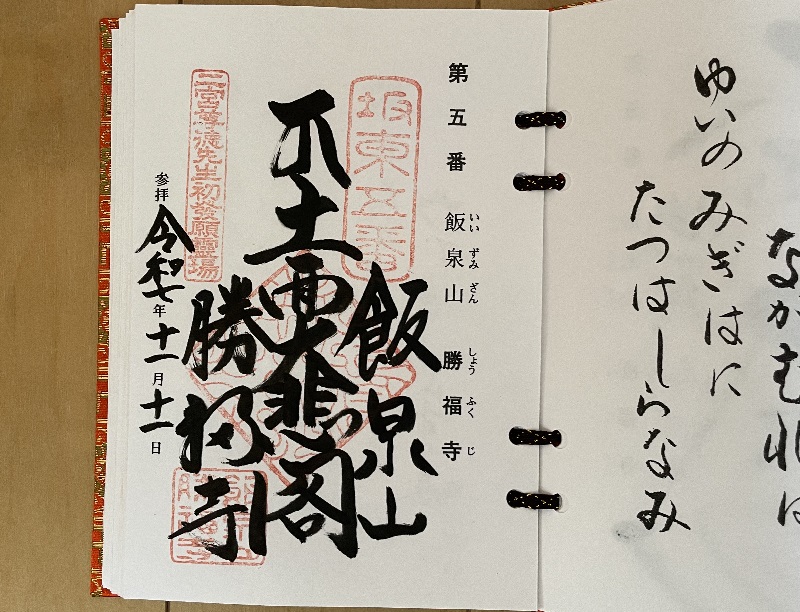 ながむれは
ゆいのみぎはに
たつはしらなみ
第五番 飯泉山 勝福寺
いい ずみ ざん しょう ふく じ
坂東五番
飯泉山
大悲閣
勝福寺
二宮尊徳先生初發願靈場
参拝 令和七年十一月十一日